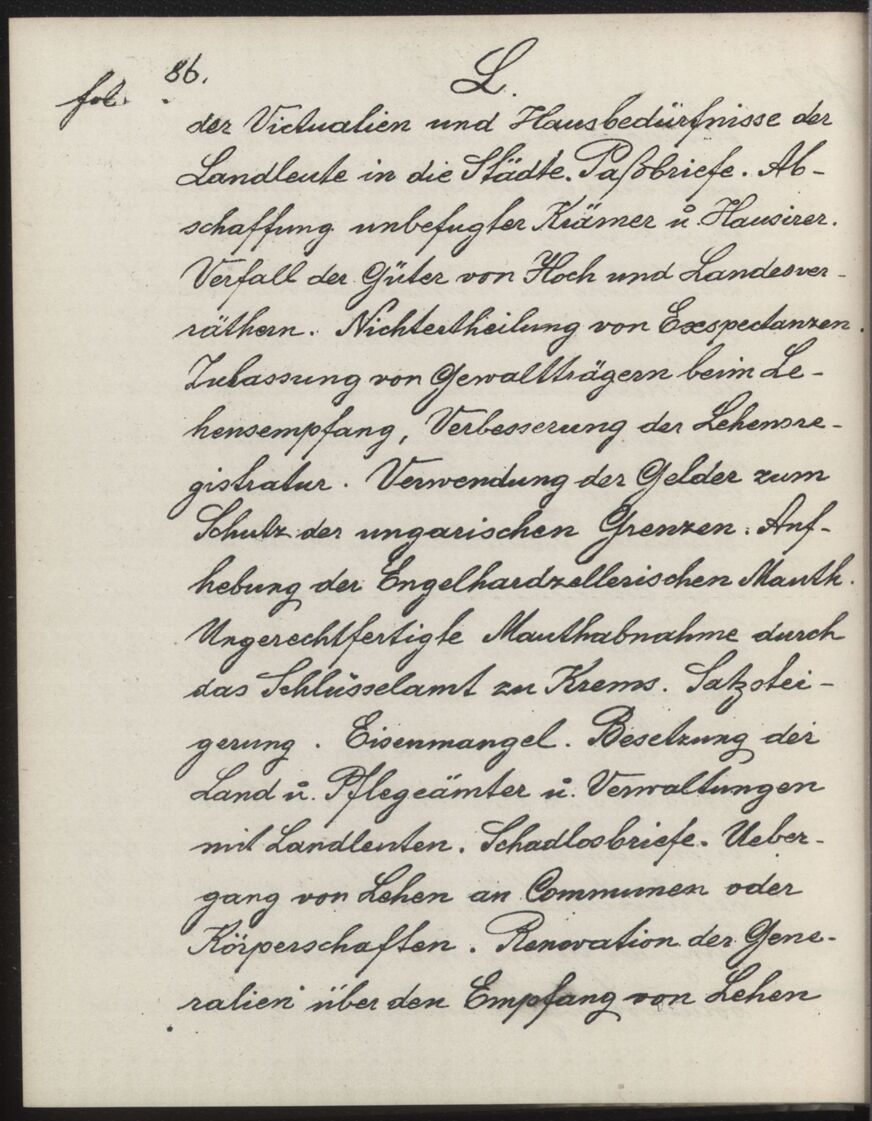 86.
L.
fol.
der Victualien und Hausbedürfnisse der
Landleute in die Städte. Paßbriefe. Ab-
schaffung unbefugter Krämer u. Hausirer.
Verfall der Güter von Hoch und Landesver-
räthern. Nichtertheilung von Exspectanzen.
Zulassung von Gewaltträgern beim Le-
hensempfang, Verbesserung der Lehensre-
gistratur. Verwendung der Gelder zum
Schutz der ungarischen Grenzen. Auf-
hebung der Engelhardzellerischen Mauth.
Ungerechtfertigte Mauthabnahme durch
das Schlüsselamt zu Krems. Satzstei-
gerung. Eisenmangel. Besetzung der
Land u. Pflegeämter u. Verwaltungen
mit Landleuten. Schadlosbriefe. Ueber-
gang von Lehen an Communen oder
Körperschaften. Renovation der Gene-
ralien über den Empfang von Lehen